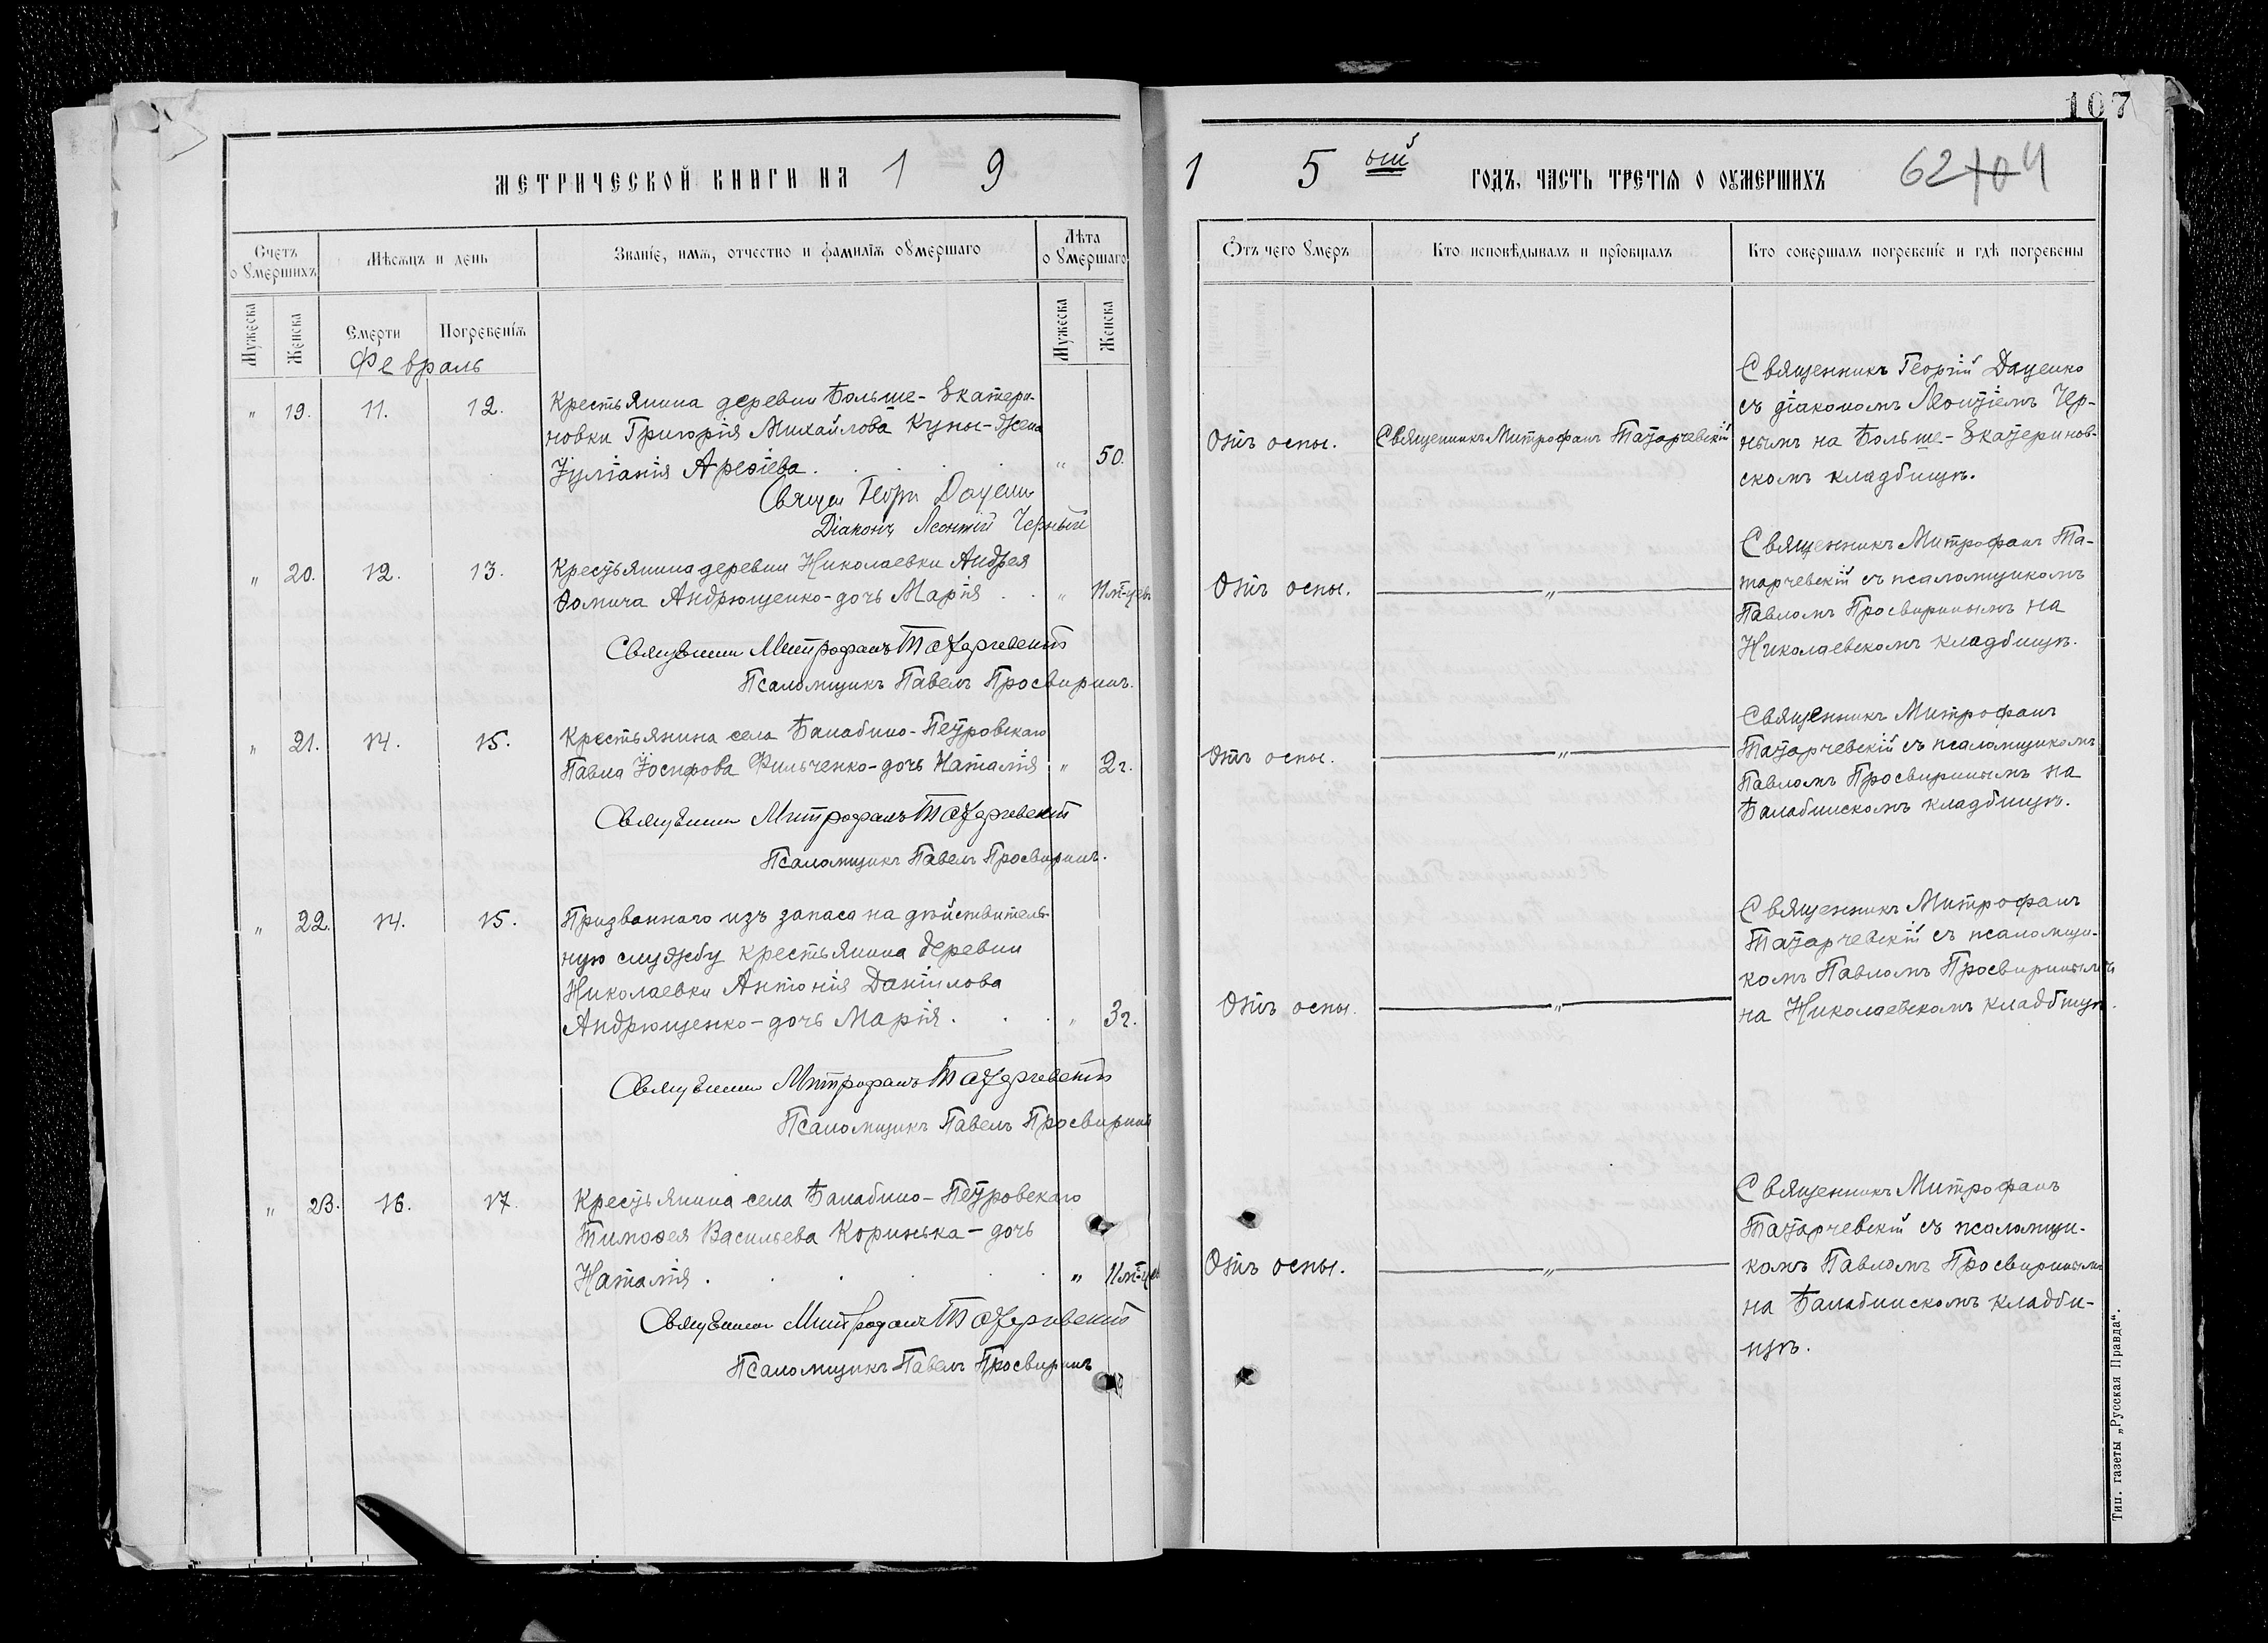 107
МЕТРИЧЕСКОЙ КНИГИ НА 1 9
1 5 ый ГОДЪ, ЧАСТЬ ТРЕТІЯ О ОУМЕРШИХЪ 62 104
Счетъ оумершихъ
Мѣсяцъ и день
Званіе, имя, отчество и фамилія оумершаго
Лѣта оумершаго
Мужеска
Женска
Смерти
Погребенія
Мужеска
Женска
Отъ чего умеръ
Кто исповѣдывалъ и пріобщалъ
Кто совершалъ погребеніе и гдѣ погребены
Февраль
" 19. 11. 12.
Крестьянина деревни Больше-Екатери-
новки Григорія Михайлова Куцы-жена
Іуліанія Арефіева. . . . . " 50.
Отъ оспы.
Священникъ Митрофанъ Татарчевскій
Священникъ Георгій Даценко
съ діакономъ Леонтіемъ Чер-
нымъ на Больше-Екатеринов-
скомъ кладбищѣ.
Діаконъ Леонтій Черный
" 20. 12. 13.
Крестьянина деревни Николаевки Андрея
Ѳомича Андрющенко-дочь Марія . . " 11 м-цевъ
Отъ оспы.
"
Священникъ Митрофанъ Та-
тарчевскій съ псаломщикомъ
Павломъ Просвиринымъ на
Николаевскомъ кладбищѣ.
Священникъ Митрофанъ Татарчевскій
Псаломщикъ Павелъ Просвиринъ.
" 21. 14. 15.
Крестьянина села Балабино-Петровскаго
Павла Іосифова Фильченко-дочь Наталія " 2 г.
Отъ оспы.
"
Священникъ Митрофанъ
Татарчевскій съ псаломщикомъ
Павломъ Просвиринымъ на
Балабинскомъ кладбищѣ.
Священникъ Митрофанъ Татарчевскій
Псаломщикъ Павелъ Просвиринъ.
" 22. 14. 15.
Призваннаго изъ запаса на дѣйствитель-
ную службу крестьянина деревни
Николаевки Антонія Даніилова
Андрющенко-дочь Марія. . . " 3 г.
Отъ оспы.
"
Священникъ Митрофанъ
Татарчевскій съ псаломщи-
комъ Павломъ Просвиринымъ
на Николаевскомъ кладбищѣ.
Священникъ Митрофанъ Татарчевскій
Псаломщикъ Павелъ Просвиринъ
" 23. 16. 17.
Крестьянина села Балабино-Петровскаго
Тимофея Васильева Коринька-дочь
Наталія . . . . . " 11 м-цев
Отъ оспы.
"
Священникъ Митрофанъ
Татарчевскій съ псаломщи-
комъ Павломъ Просвиринымъ
на Балабинскомъ кладби-
щѣ.
Священникъ Митрофанъ Татарчевскій
Псаломщикъ Павелъ Просвиринъ
Тип. газеты „Русская Правда“.